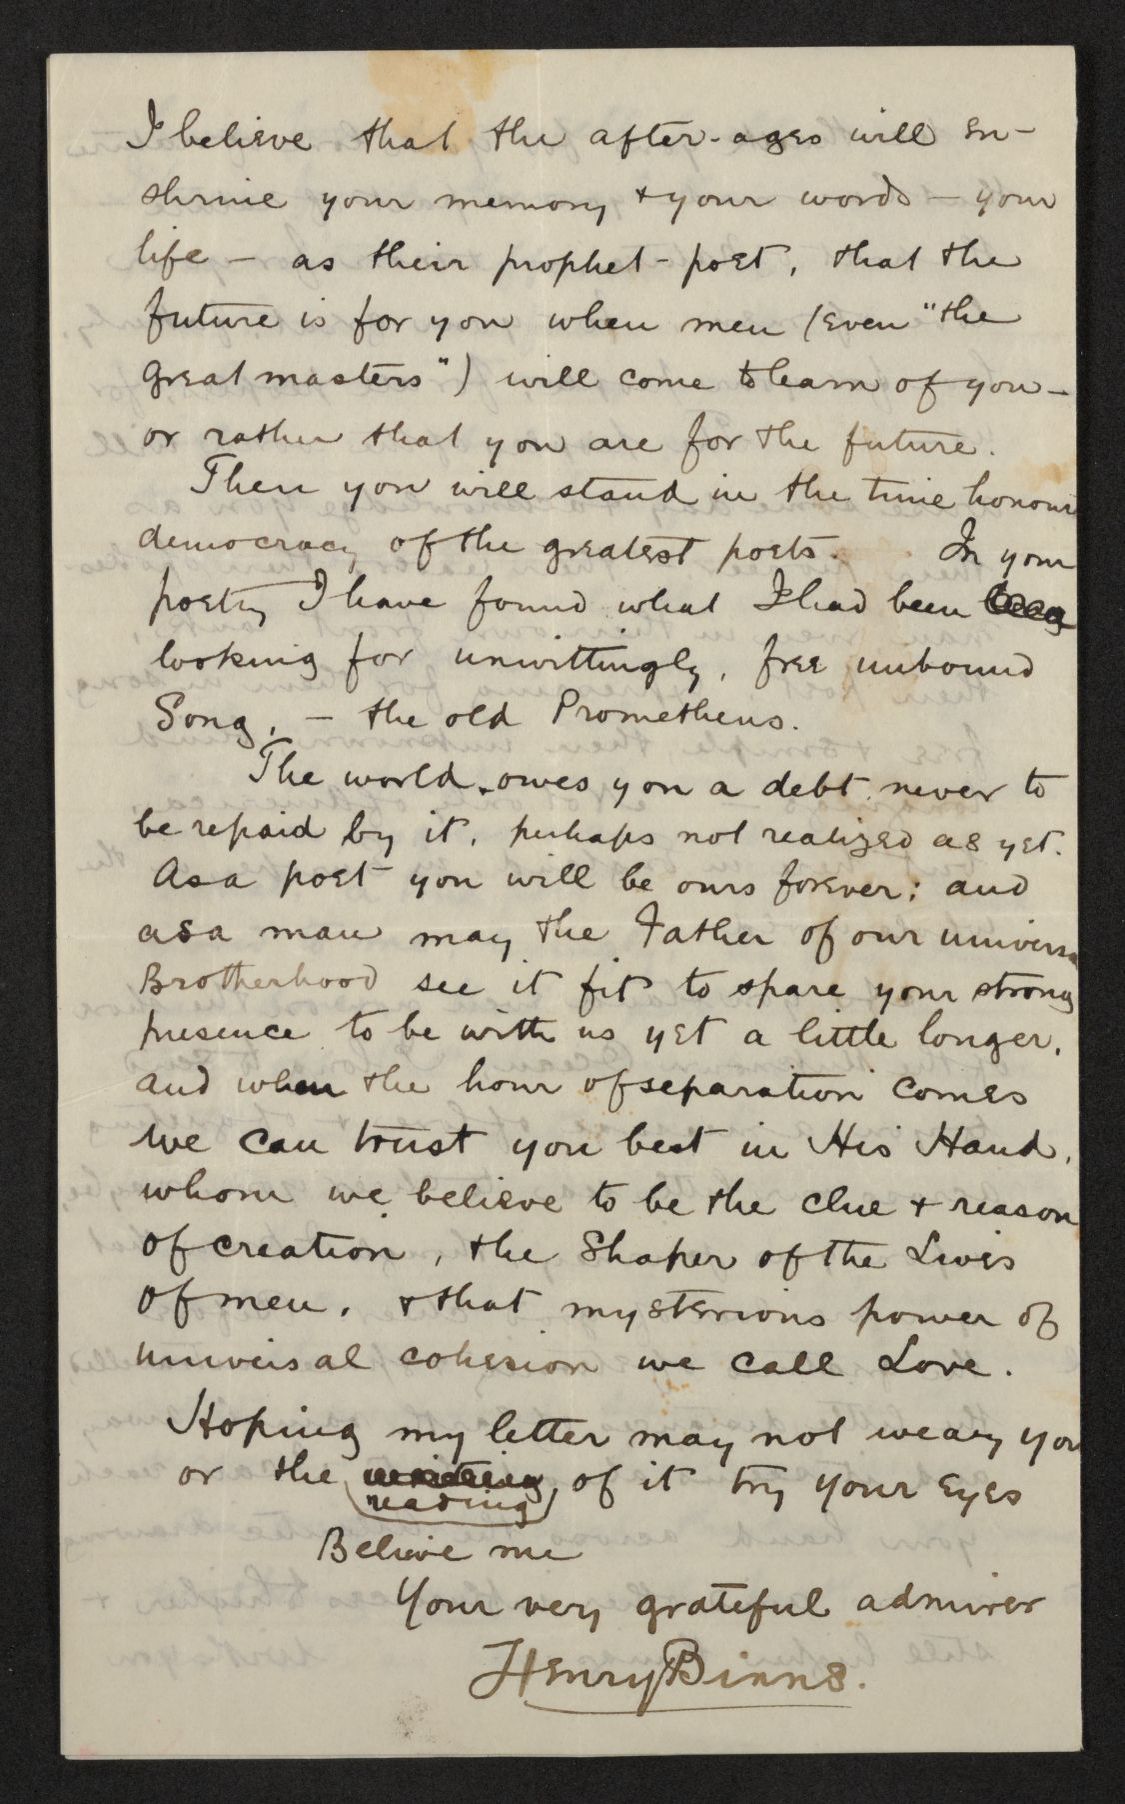 I believe that the after-ages will en-
shrine your memory & your words – your
life – as their prophet-poet, that the
future is for you when men (even "the
great masters") will come to learn of you –
or rather that you are for the future.
Then you will stand in the time honour
democracy of the greatest poets. In your
poetry I have found what I had been
looking for unwittingly, free unbound
Song, – the old Prometheus.
The world owes you a debt never to
be repaid by it, perhaps not realized as yet.
As a poet you will be ours forever; and
as a man may the Father of our universa
Brotherhood see it fit to spare your strong
presence to be with us yet a little longer,
and when the hour of separation comes
we can trust you best in His Hand,
whom we believe to be the clue & reason
of creation, the Shaper of the Lives
of men, & that mysterious power of
universal cohesion we call Love.
Hoping my letter may not weary you
or the writing of it try your eyes
reading
Believe me
Your very grateful admirer
Henry Binns.